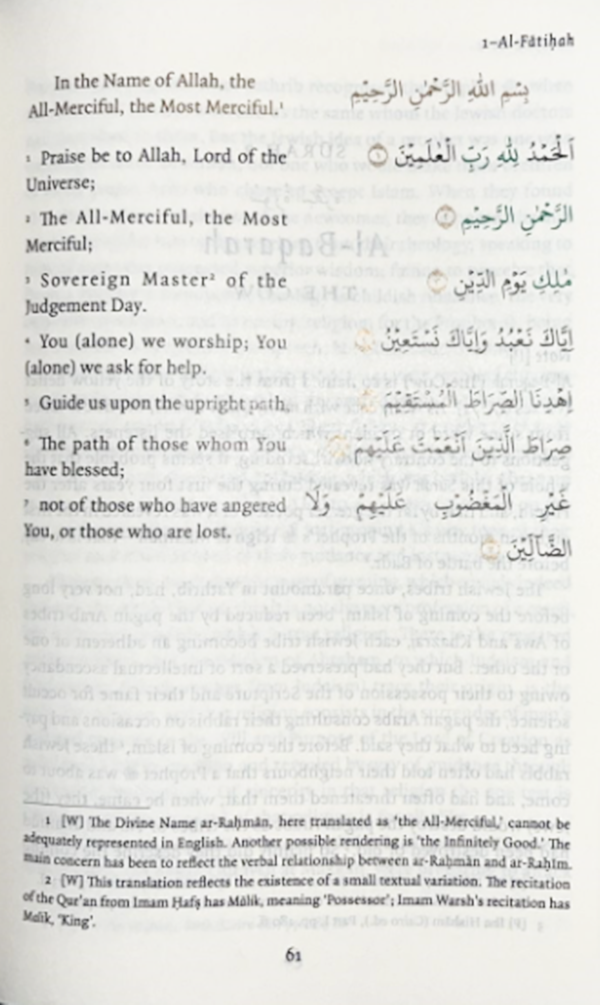 1–Al-Fātiḥah
In the Name of Allah, the
All-Merciful, the Most Merciful.¹
بِسْمِ اللَّهِ الرَّحْمَٰنِ الرَّحِيْمِ
¹ Praise be to Allah, Lord of the
Universe;
اَلْحَمْدُ لِلّٰهِ رَبِّ الْعٰلَمِيْنَ ١
² The All-Merciful, the Most
Merciful;
الرَّحْمٰنِ الرَّحِيْمِ ٢
³ Sovereign Master² of the
Judgement Day.
مٰلِكِ يَوْمِ الدِّيْنِ ٣
⁴ You (alone) we worship; You
(alone) we ask for help.
إِيَّاكَ نَعْبُدُ وَإِيَّاكَ نَسْتَعِيْنُ
⁵ Guide us upon the upright path,
اِهْدِنَا الصِّرَاطَ الْمُسْتَقِيْمَ
⁶ The path of those whom You
have blessed;
صِرَاطَ الَّذِيْنَ اَنْعَمْتَ عَلَيْهِمْ
⁷ not of those who have angered
You, or those who are lost.
غَيْرِ الْمَغْضُوْبِ عَلَيْهِمْ وَلَا
الضَّآلِّيْنَ
1 [W] The Divine Name ar-Raḥmān, here translated as 'the All-Merciful,' cannot be
adequately represented in English. Another possible rendering is 'the Infinitely Good.' The
main concern has been to reflect the verbal relationship between ar-Raḥmān and ar-Raḥīm.
2 [W] This translation reflects the existence of a small textual variation. The recitation
of the Qur'an from Imam Ḥafṣ has Mālik, meaning 'Possessor'; Imam Warsh's recitation has
Malik, 'King'.
61